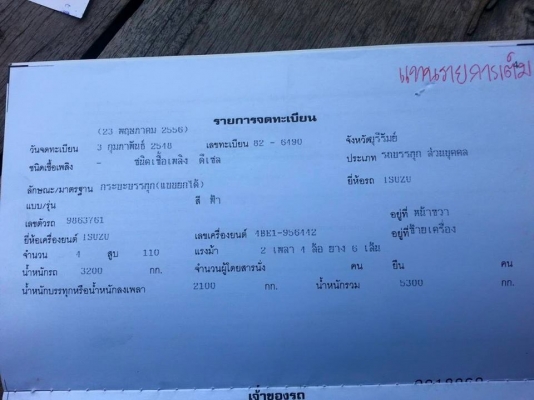 แทนรายการเต็ม
รายการจดทะเบียน
(23 พฤษภาคม 2556)
วันจดทะเบียน 3 กุมภาพันธ์ 2548 เลขทะเบียน 82 - 6490 จังหวัดบุรีรัมย์
ชนิดเชื้อเพลิง - ชนิดเชื้อเพลิง ดีเซล ประเภท รถบรรทุก ส่วนบุคคล
ลักษณะ/มาตรฐาน กระบะบรรทุก(แบบยกได้) ยี่ห้อรถ ISUZU
แบบ/รุ่น สี ฟ้า
เลขตัวรถ 9863761 อยู่ที่ หน้าขวา
ยี่ห้อเครื่องยนต์ ISUZU เลขเครื่องยนต์ 4BE1-956442 อยู่ที่ซ้ายเครื่อง
จำนวน 4 สูบ 110 แรงม้า 2 เพลา 4 ล้อ ยาง 6 เส้น
น้ำหนักรถ 3200 กก. จำนวนผู้โดยสารนั่ง คน ยืน คน
น้ำหนักบรรทุกหรือน้ำหนักลงเพลา 2100 กก. น้ำหนักรวม 5300 กก.
เจ้าของรถ